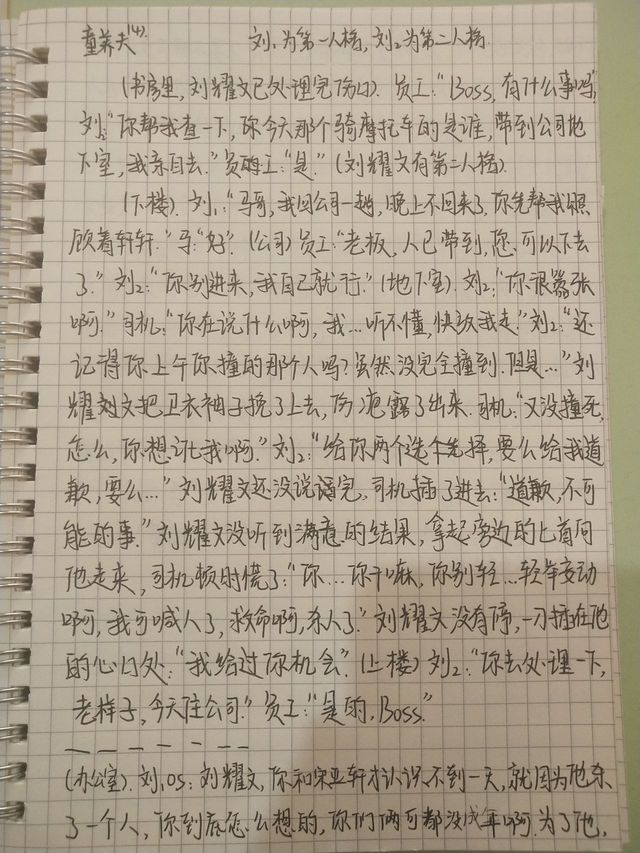 童养夫(4). 刘1为第一人格, 刘2为第二人格.
(书房里, 刘耀文已处理完伤口). 员工:“Boss, 有什么事吗”
刘1:“你帮我查一下, 你今天那个骑摩托车的是谁, 带到公司地
下室, 我亲自去.” 员工:“是.” (刘耀文有第二人格).
(下楼). 刘1:“马哥, 我回公司一趟, 晚上不回来了, 你先帮我照
顾着轩轩.” 马:“好”. (公司) 员工:“老板, 人已带到, 您可以下去
了.” 刘2:“你别进来, 我自己就行.” (地下室). 刘2:“你很嚣张
啊.” 司机:“你在说什么啊, 我...听不懂, 快放我走.” 刘2:“还
记得你上午你撞的那个人吗? 虽然没完全撞到. 但是...” 刘
耀文把卫衣袖子挽了上去, 伤疤露了出来. 司机:“又没撞死,
怎么, 你想讹我啊.” 刘2:“给你两个选个先择, 要么给我道
歉, 要么...” 刘耀文还没说话完, 司机插了进去:“道歉, 不可
能的事.” 刘耀文没听到满意的结果, 拿起旁边的匕首向
他走来, 司机顿时慌了:“你...你干嘛, 你别轻...轻举妄动
啊, 我可喊人了, 救命啊, 杀人了.” 刘耀文没有停, 一刀插在他
的心口处:“我给过你机会”. (上楼) 刘2:“你去处理一下,
老样子, 今天住公司.” 员工:“是的, Boss.”
(办公室). 刘1OS: 刘耀文, 你和宋亚轩才认识不到一天, 就因为他杀
了一个人, 你到底怎么想的, 你们俩可都没成年啊. 为了他,